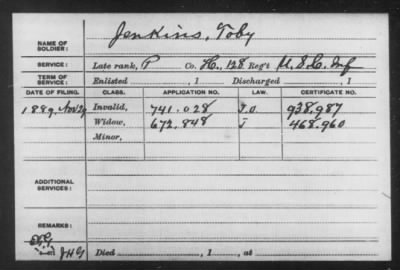 NAME OF SOLDIER: Jenkins, Toby
SERVICE: Late rank, P Co. H, 128 Reg't U.S.C. Inf
TERM OF SERVICE: Enlisted , 1 Discharged , 1
DATE OF FILING. CLASS. APPLICATION NO. LAW. CERTIFICATE NO.
1889, Nov 29 Invalid, 741.028 938.987
Widow, 672,848 468.960
Minor,
ADDITIONAL SERVICES:
REMARKS:
JHG Died , 1 , at